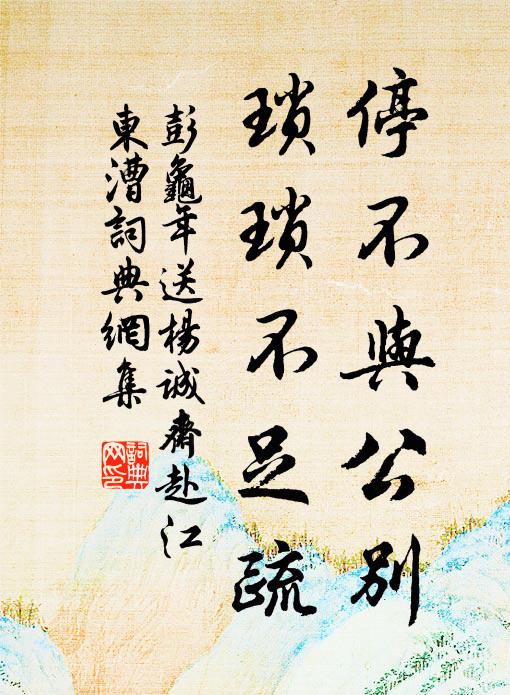 停不與公別
瑣瑣不足疏
彭龜年送楊誠齋赴江
東漕詞典網集
詞典網印